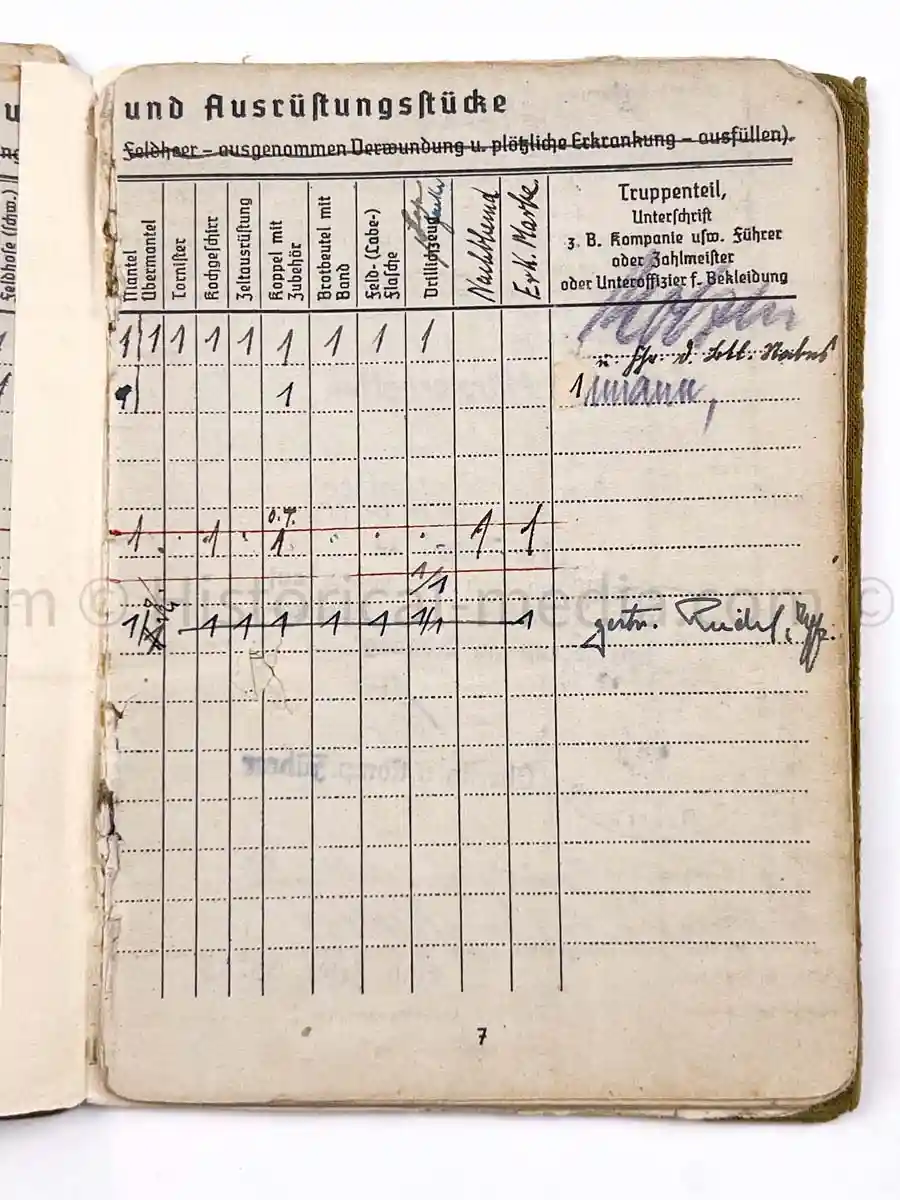 und Ausrüstungsstücke
Feldheer – ausgenommen Verwundung u. plötzliche Erkrankung – ausfüllen).
Feldhose (schw.)
Mantel
Übermantel
Tornister
Kochgeschirr
Zeltausrüstung
Koppel mit
Zubehör
Brotbeutel mit
Band
Feld- (Labe-)
flasche
Drillichzeug
Nachthemd
Erk. Marke
Truppenteil,
Unterschrift
z. B. Kompanie usw. Führer
oder Zahlmeister
oder Unteroffizier f. Bekleidung
1 1 1 1 1 1 1 1 1
1 1
o.T.
1 1 1 1 1
1/1
1 1 1 1 1 1 1/1 1 gestr. Riedel, Uffz.
Komp. Führer
7
© Historical-media.com ©